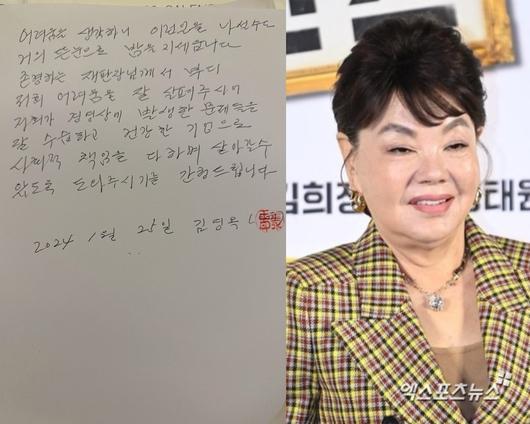 어려움을 생각하니 이런저런
거의 뜬눈으로 밤을 지새웁니다
존경하는 재판장님께서 부디
저희 어려움을 잘 살펴주시어
저희가 경영상에 발생한 문제들을
잘 수습하고 건강한 기업으로
사회적 책임을 다하며 살아갈수
있도록 도와주시기를 간청드립니다
2024 1월 25일 김영옥
김희정
태원
엑스포츠뉴스